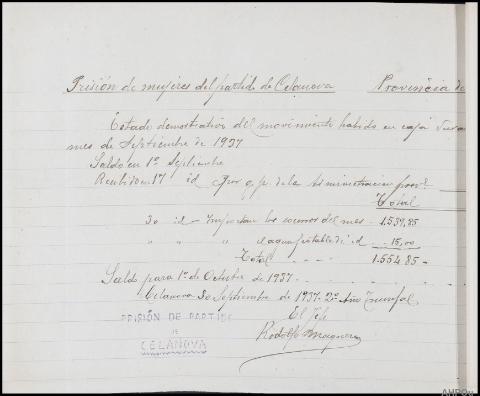 Prisión de mujeres del partido de Celanova Provincia de
Estado demostrativo del movimiento habido en caja
mes de Septiembre de 1937
Saldo en 1º Septiembre
Recibido en 17 id por de la Administración
Total
30 id - Importan los socorros del mes - 1.539,85
" " " El agua potable de id - 15,00
Total - - - - 1.554,85 -
Saldo para 1º de Octubre de 1937 -
Celanova 30 Septiembre de 1937. 2º Año Triunfal
El Jefe
Rodolfo
PRISIÓN DE PARTIDO
DE
CELANOVA
AHPOu